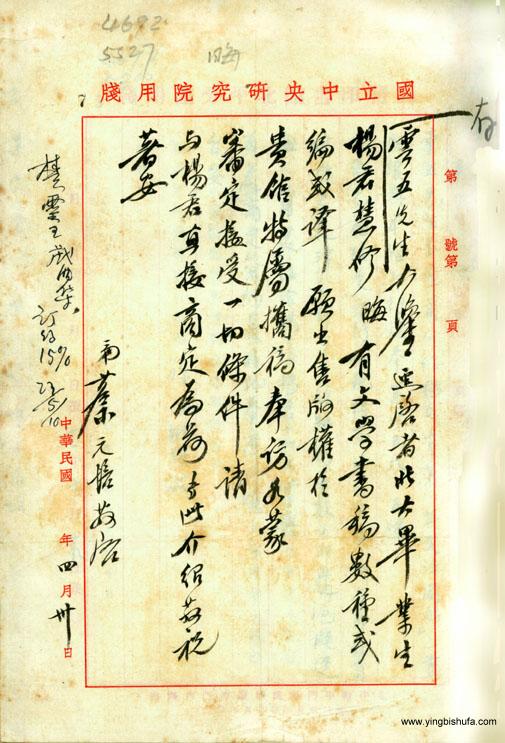 4692
5527
晦
國立中央研究院用牋
存
第 號第 頁
雲五先生大鑒逕啓者北大畢業生
楊君慧修 晦 有文學書稿數種或
編或譯 願出售版權於
貴館特屬攜稿奉訪如蒙
審定接受一切條件請
與楊君直接商定爲荷專此介紹敬祝
著安
弟蔡元培敬啓
中華民國 年四月卅日
楚靈王
訂約15%
www.yingbishufa.com